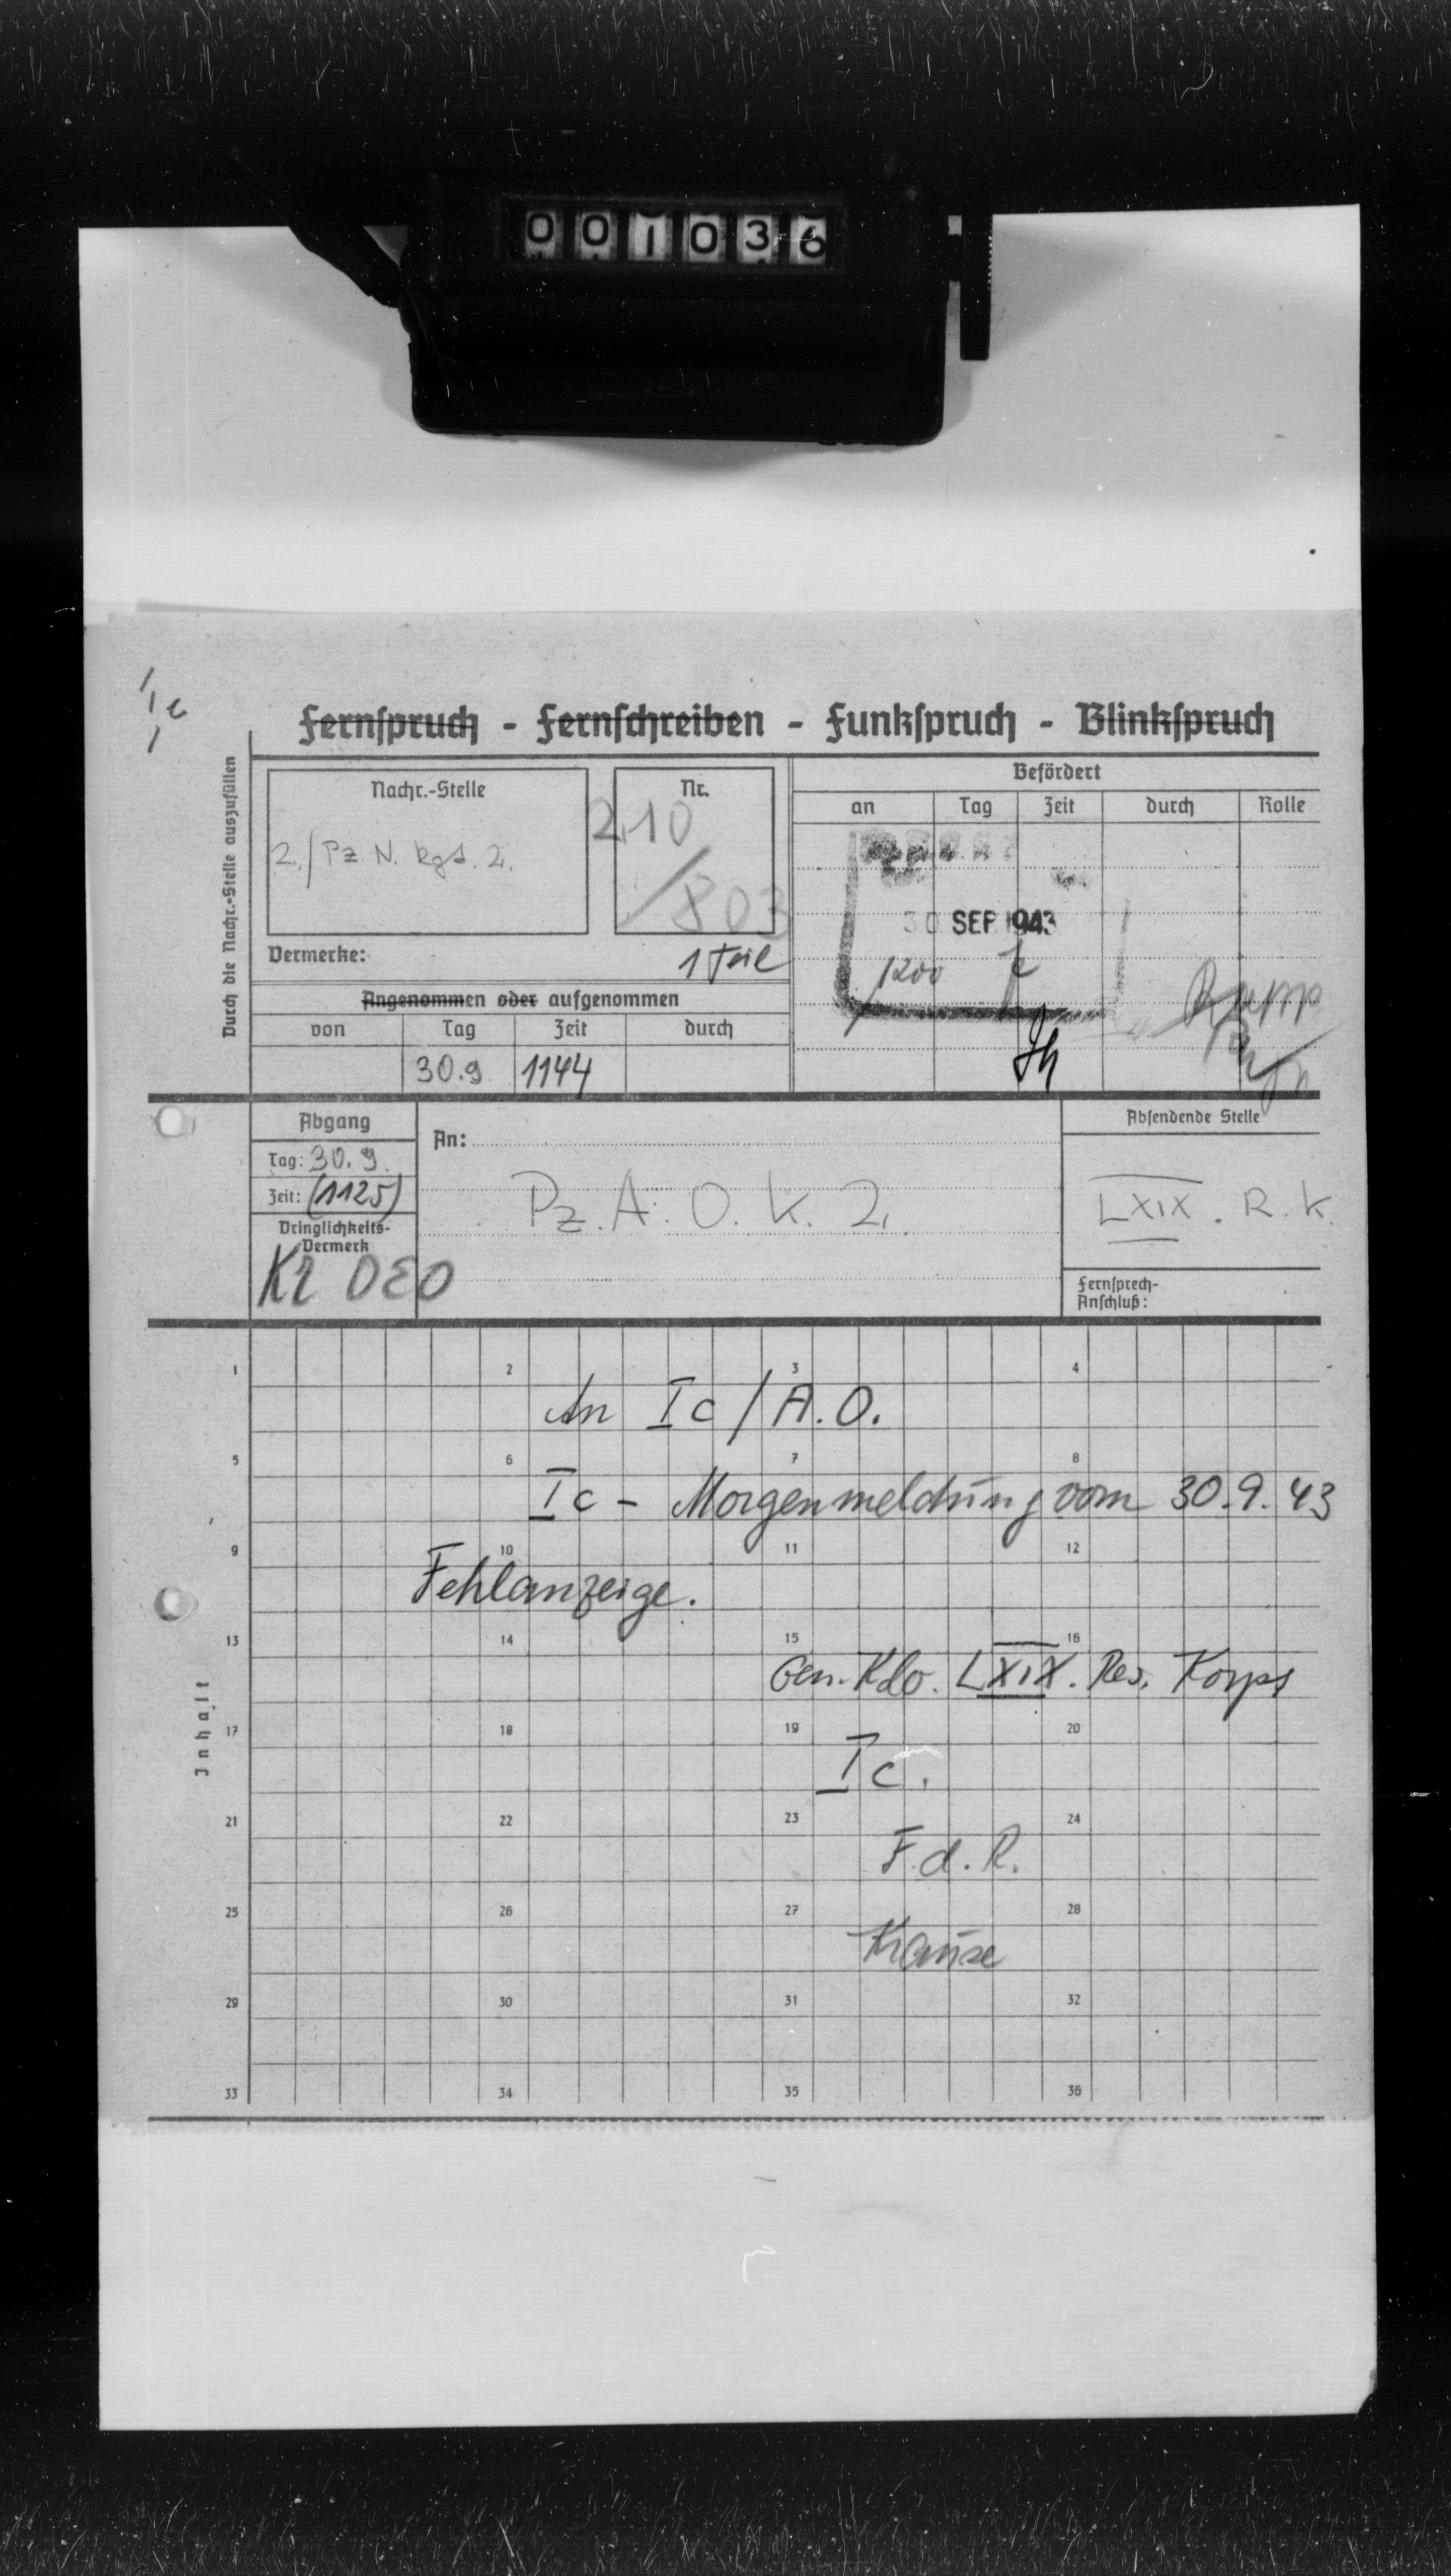 001036
Ic
Fernspruch - Fernschreiben - Funkspruch - Blinkspruch
Durch die Nachr.-Stelle auszufüllen
Nachr.-Stelle
2./Pz. N. Rgt. 2.
Nr.
210
/803
Vermerke:
1 Teil
Angenommen oder aufgenommen
von Tag Zeit durch
30.9 1144
Befördert
an Tag Zeit durch Rolle
30 SEP 1943
1200
Abgang
Tag: 30.9.
Zeit: (1125)
Dringlichkeits-
Vermerk
KR
An:
Pz. A. O. K. 2.
Absendende Stelle
LXIX. R. K.
Fernsprech-
Anschluß:
Inhalt
1 2 3 4
An Ic/A.O.
5 6 7 8
Ic - Morgenmeldung vom 30.9.43
9 10 11 12
Fehlanzeige.
13 14 15 16
Gen. Kdo. LXIX. Res. Korps
17 18 19 20
Ic.
21 22 23 24
F. d. R.
25 26 27 28
Krause
29 30 31 32
33 34 35 36